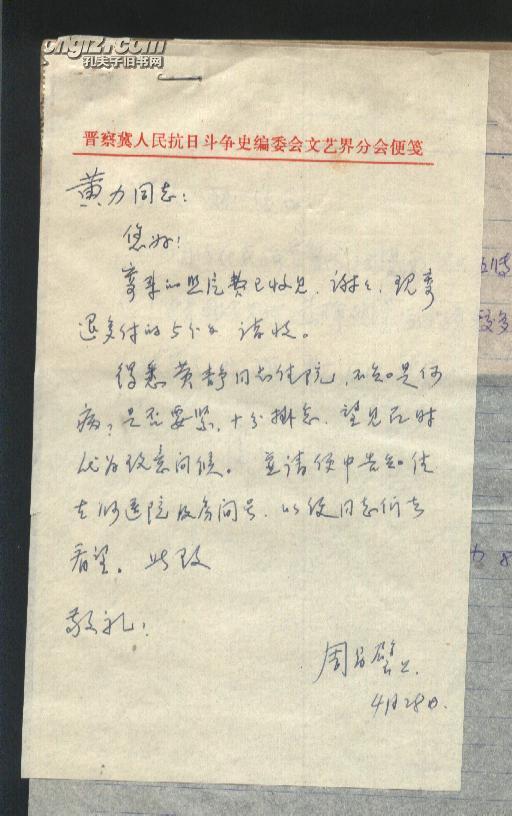 cngiz.com
孔夫子旧书网
晋察冀人民抗日斗争史编委会文艺界分会便笺
黄力同志：
您好！
寄来的照片费已收见，谢谢，现寄
退多付的5个 请收。
得悉黄静同志住院，不知是何
病？是否要紧，十分掛念，望见面时
代为致意问候。並请便中告知住
在何医院及房间号，以便同志们去
看望。此致
敬礼！
周
4月28日